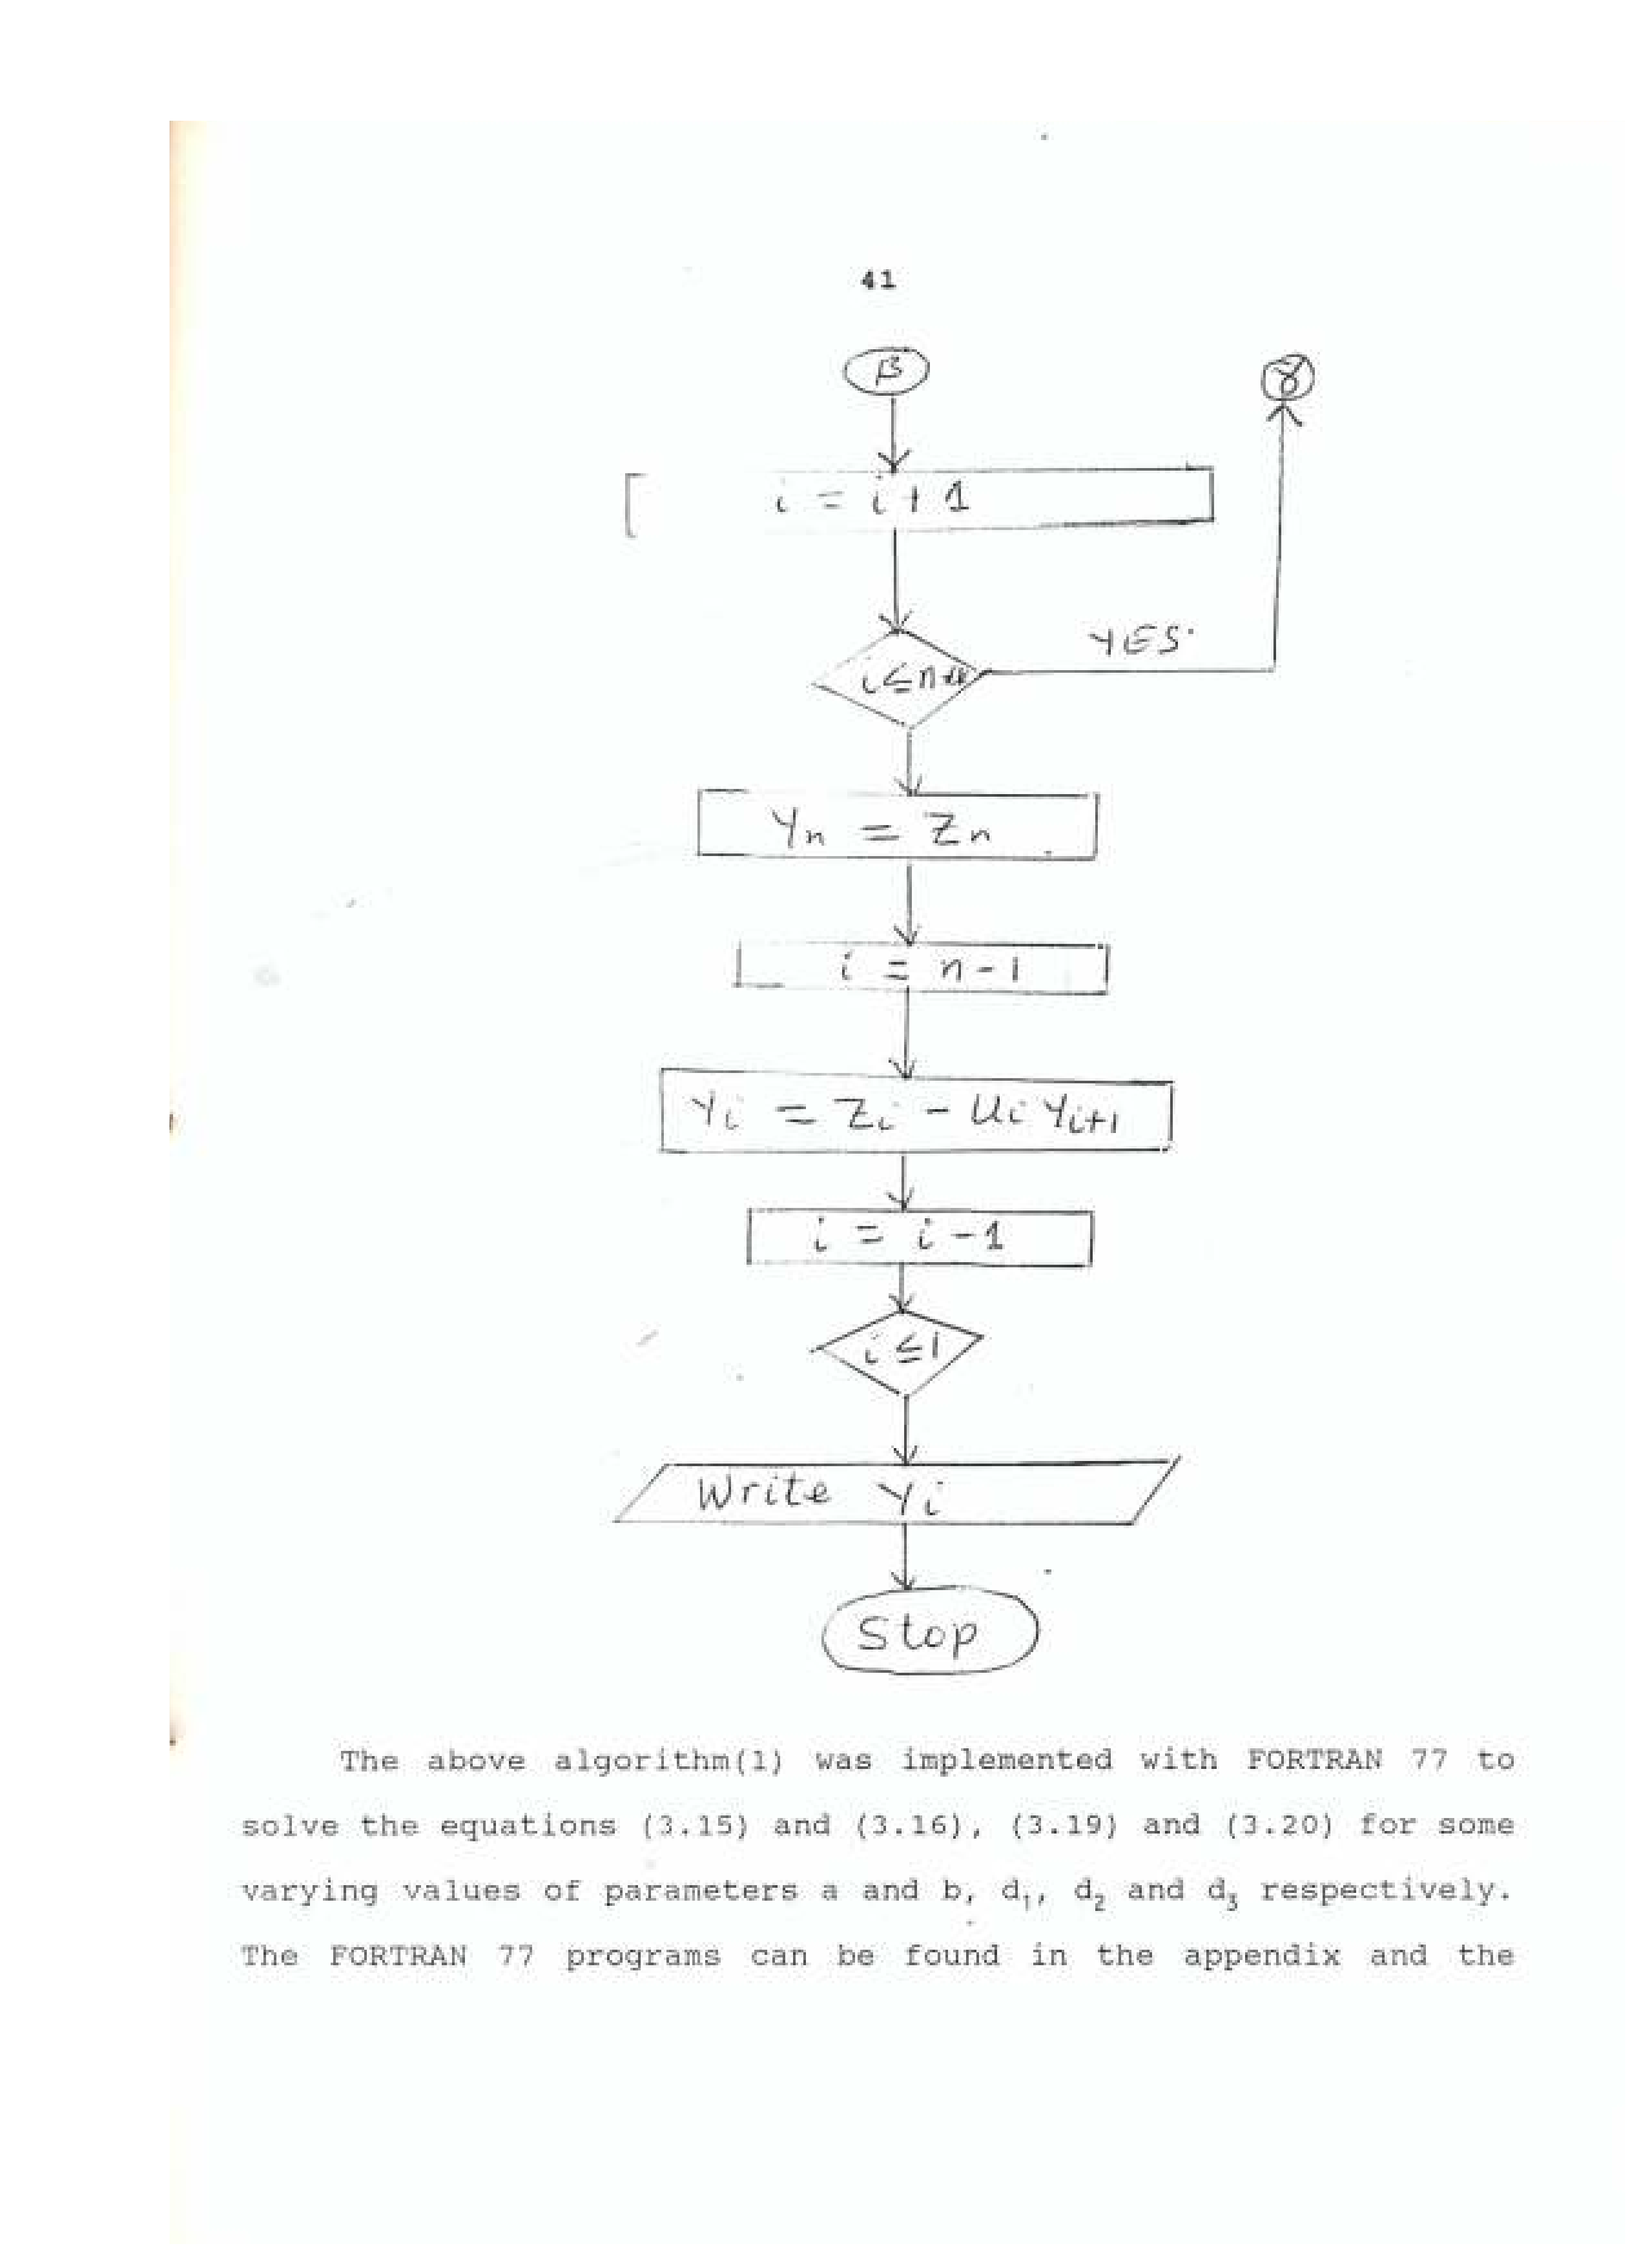 41
β
γ
i = i + 1
YES.
i ≤ n
Yn = Zn
i = n - 1
Yi = Zi - Ui Yi+1
i = i - 1
i ≤ 1
Write Yi
Stop
The above algorithm(1) was implemented with FORTRAN 77 to
solve the equations (3.15) and (3.16), (3.19) and (3.20) for some
varying values of parameters a and b, d₁, d₂ and d₃ respectively.
The FORTRAN 77 programs can be found in the appendix and the